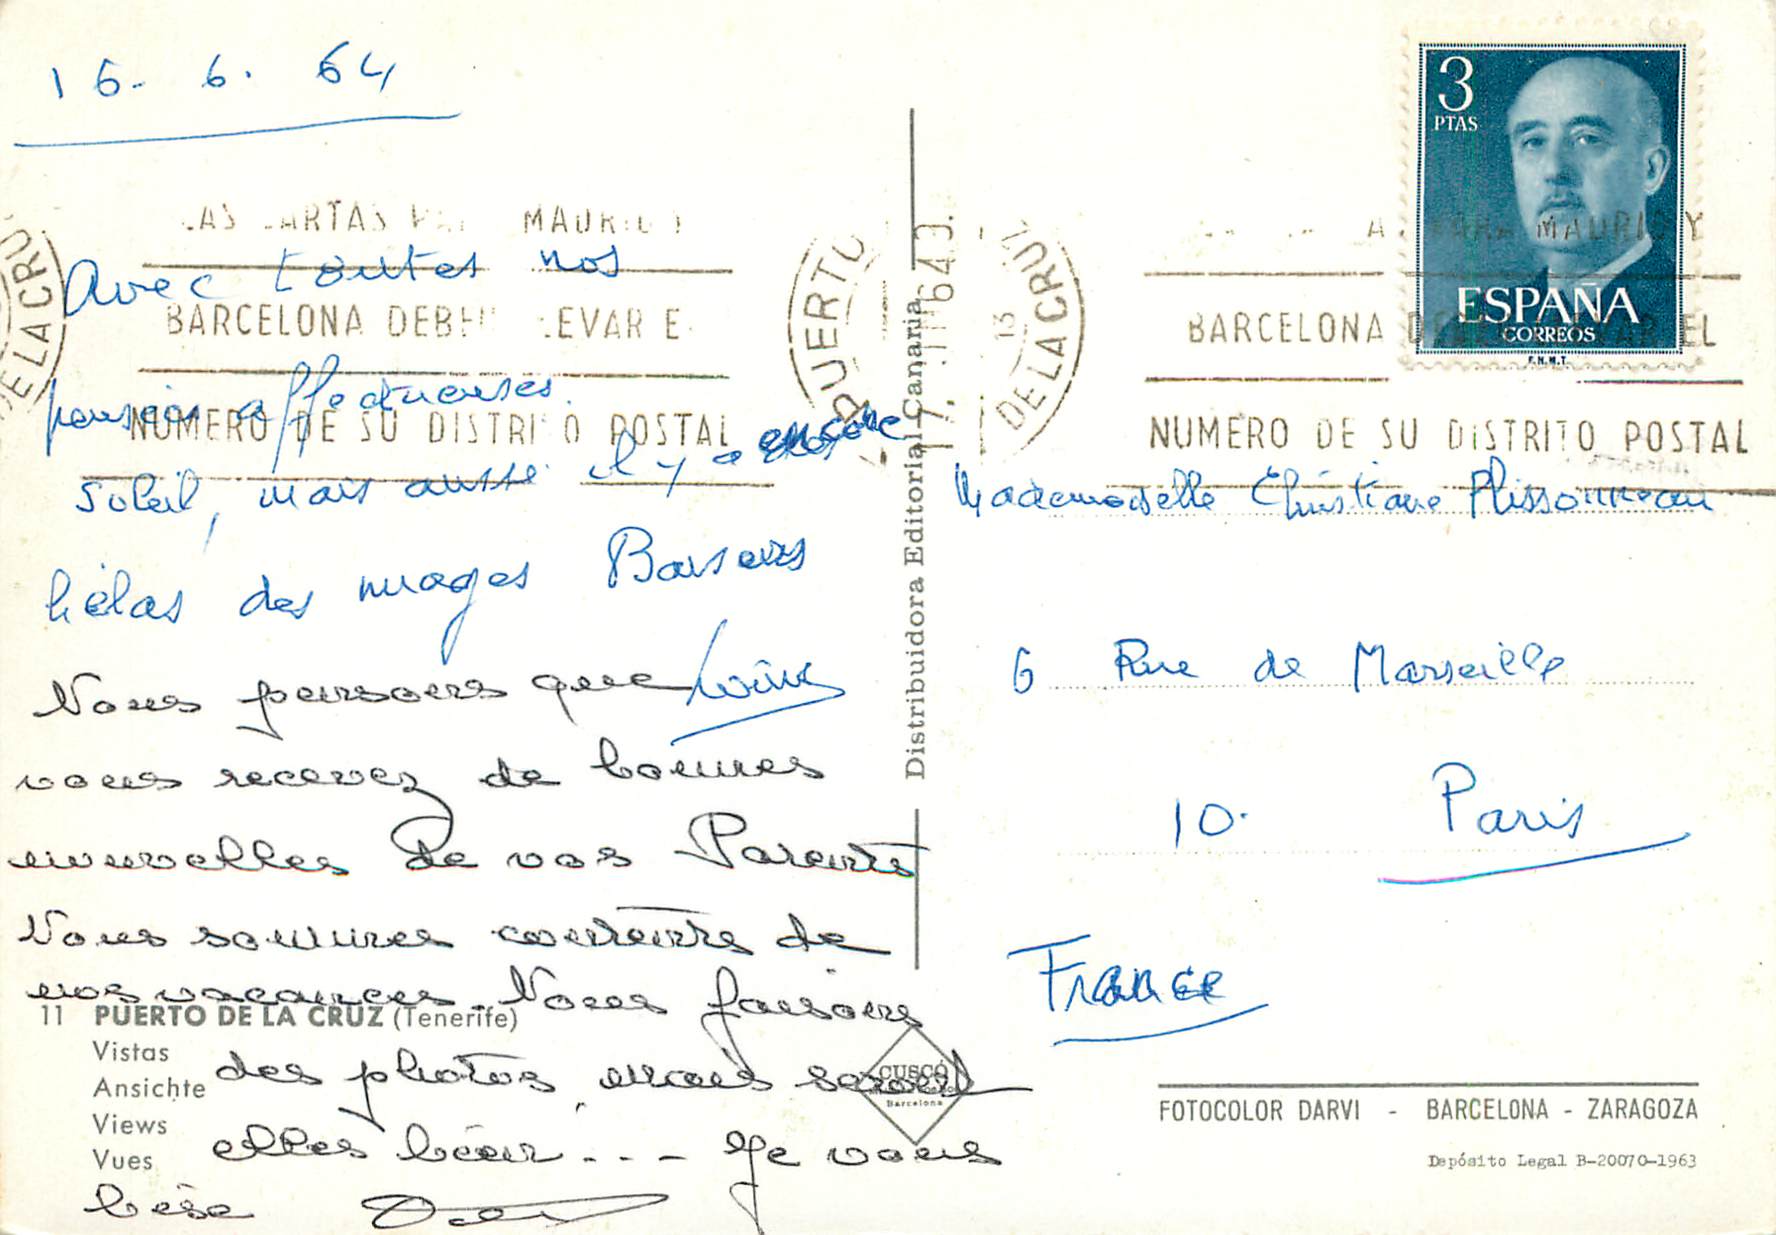 16. 6. 64
Avec toutes nos
pensées affectueuses.
Soleil, mais aussi il y a encore
hélas des nuages Baisers
Nous pensons que
vous recevez de bonnes
nouvelles de vos Parents
Nous sommes contents de
nos vacances Nous faisons
des photos, mais seront
elles bien... Je vous
bise
11 PUERTO DE LA CRUZ (Tenerife)
Vistas
Ansichte
Views
Vues
Distribuidora Editorial Canaria
CUSCÓ
Barcelona
PUERTO DE LA CRUZ
17. 64
13
MADRID Y
BARCELONA DEBEN LLEVAR EL
NUMERO DE SU DISTRITO POSTAL
PARA MADRID Y
BARCELONA DEBEN LLEVAR EL
NUMERO DE SU DISTRITO POSTAL
DE LA CRUZ
3
PTAS
ESPAÑA
CORREOS
F.N.M.T.
Mademoiselle Christiane Plissonneau
6 Rue de Marseille
10. Paris
France
FOTOCOLOR DARVI - BARCELONA - ZARAGOZA
Depósito Legal B-20070-1963